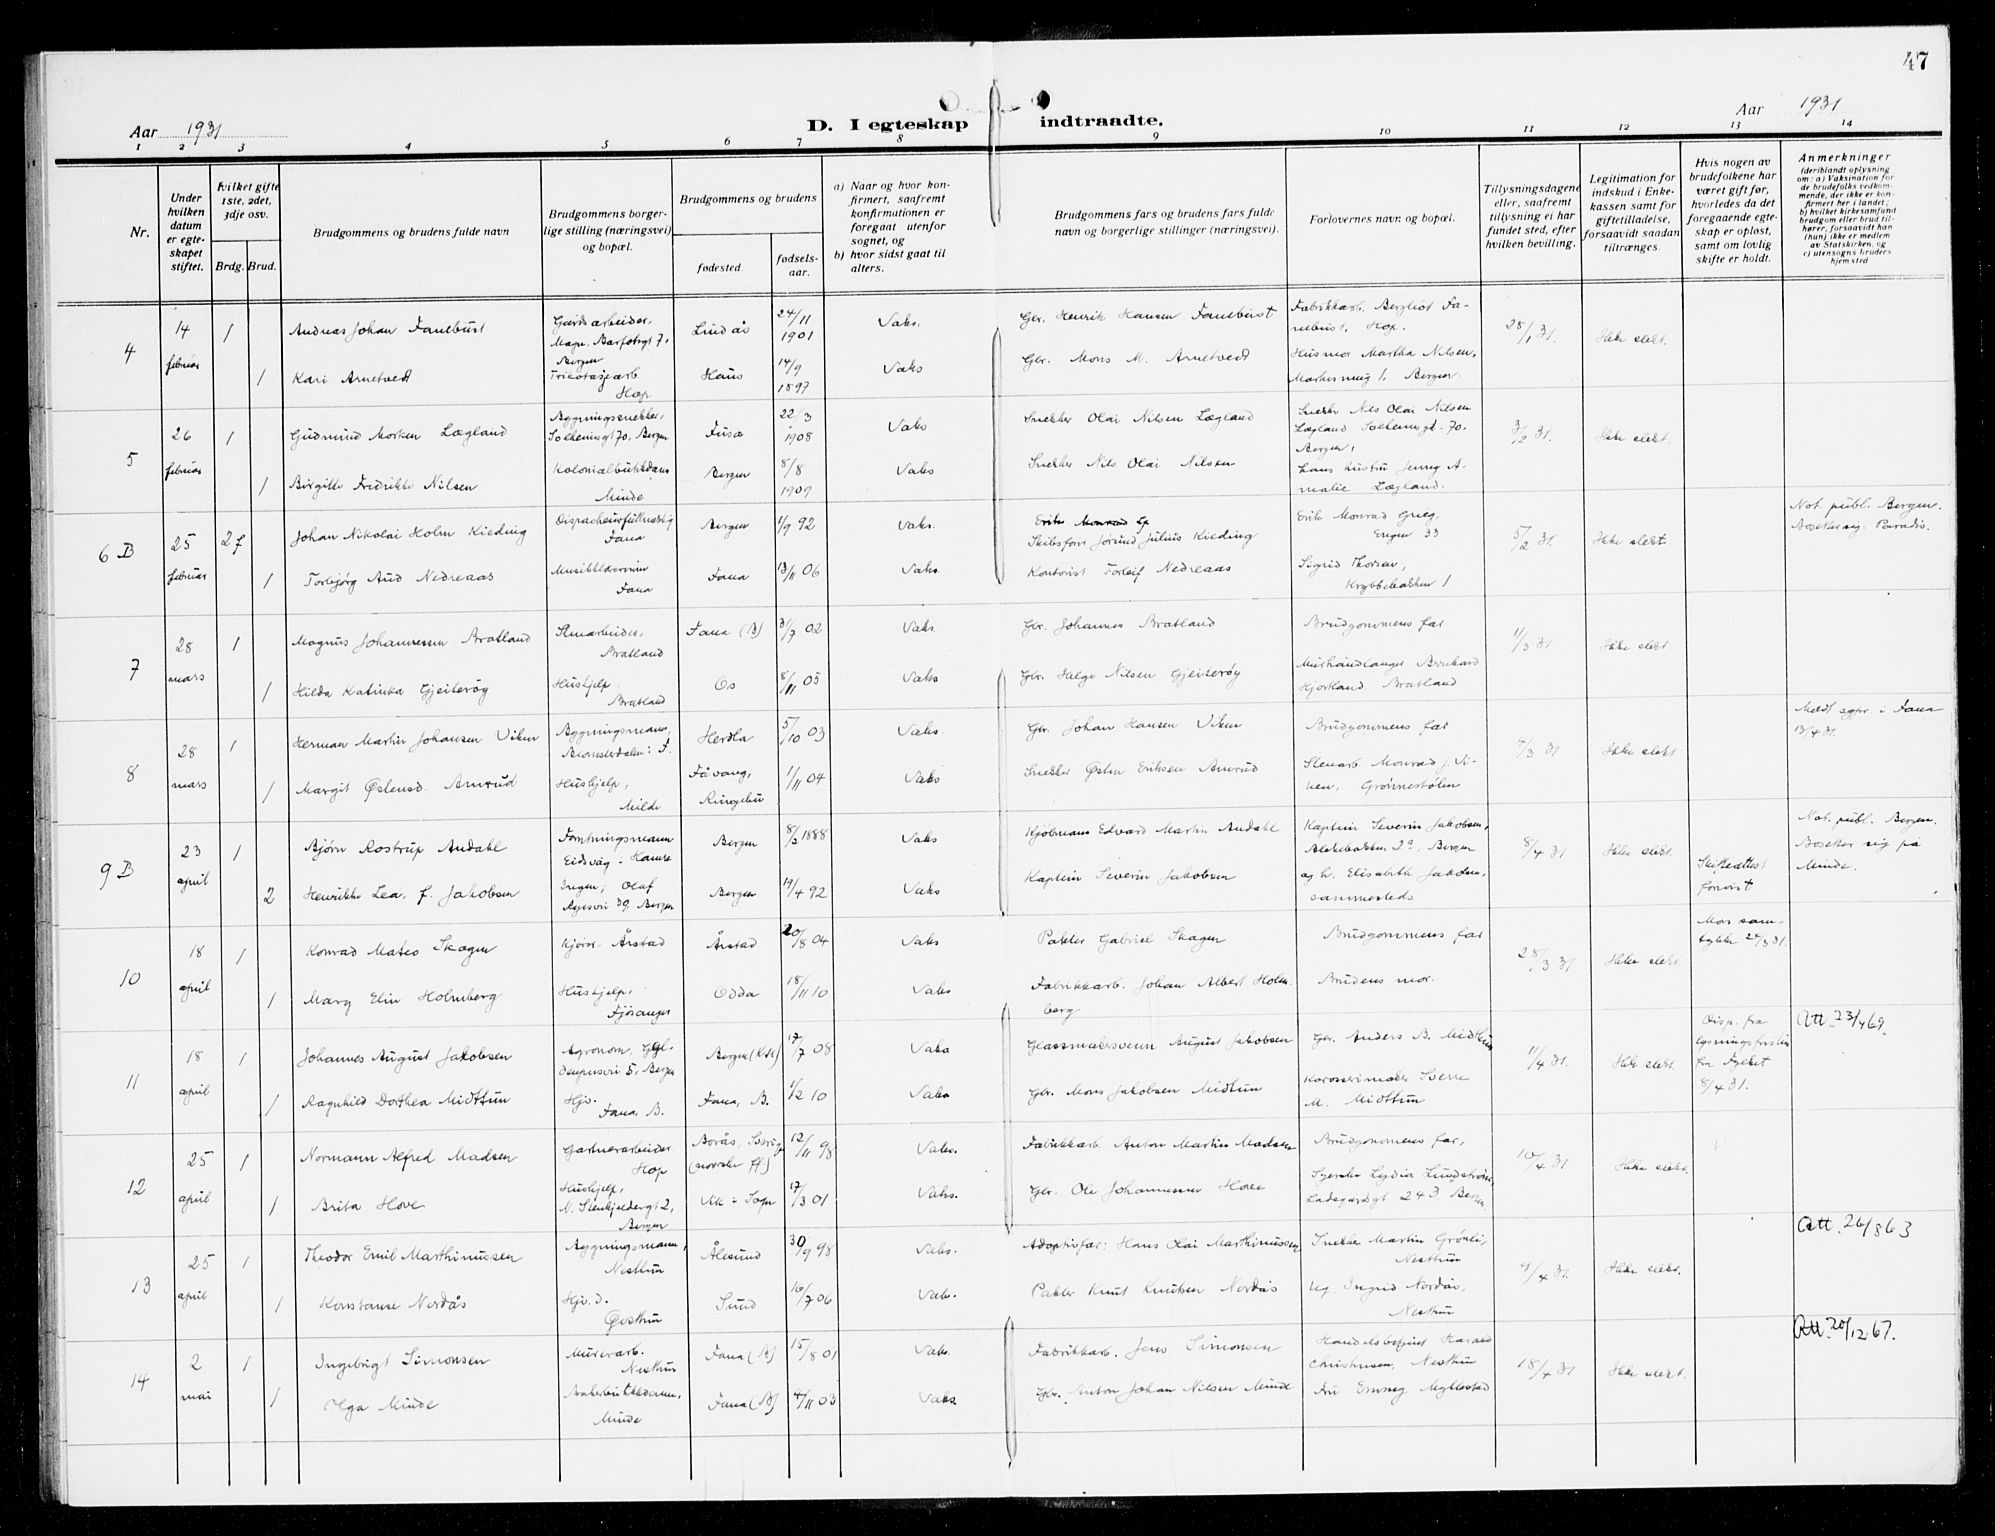 47
Aar 1931
D. I egteskap indtraadte.
Aar 1931
1 2 3 4 5 6 7 8 9 10 11 12 13 14
Nr.
Under hvilken datum er egteskapet stiftet.
hvilket gifte 1ste, 2det, 3dje osv.
Brdg. Brud.
Brudgommens og brudens fulde navn
Brudgommens borgerlige stilling (næringsvei) og bopæl.
Brudgommens og brudens
fødested.
fødselsaar.
a) Naar og hvor konfirmert, saafremt konfirmationen er foregaat utenfor sognet, og
b) hvor sidst gaat til alters.
Brudgommens fars og brudens fars fulde navn og borgerlige stillinger (næringsvei).
Forlovernes navn og bopæl.
Tillysningsdagene eller, saafremt tillysning ei har fundet sted, efter hvilken bevilling.
Legitimation for indskud i Enkekassen samt for giftetilladelse, forsaavidt saadan tiltrænges.
Hvis nogen av brudefolkene har været gift før, hvorledes da det foregaaende egteskap er opløst, samt om lovlig skifte er holdt.
Anmerkninger (deriblandt oplysning om: a) Vaksination for de brudefolks vedkommende, der ikke er konfirmert her i landet; b) hvilket kirkesamfund brudgom eller brud tilhører, forsaavidt han (hun) ikke er medlem av Statskirken, og c) utensogns bruders hjemsted
4
14 februar
1
Andreas Johan Fanebust
Gaardsarbeider, Magn. Barfotsgt 7, Bergen
Lindås
24/11 1901
Vaks.
Gbr. Henrik Hansen Fanebust
Fabrikkarb. Bergliot Fanebust, Hop.
28/1 31.
Ikke slekt.
1
Kari Arnetvedt
Trikotasjearb. Hop
Haus
14/9 1897
Vaks
Gbr. Mons M. Arnetvedt
Husmor Martha Nilsen, Markusvug 1, Bergen.
5
26 februar
1
Gudmund Morken Lægland
Bygningssnekker, Solheimsgt 70, Bergen
Fusa
22/3 1908
Vaks
Snekker Olai Nilsen Lægland
Snekker Nils Olai Nilsen Lægland Solheimsgt. 70, Bergen,
3/2 31.
Ikke slekt.
1
Birgitte Fredrikke Nilsen
Kolonialbutikdame Minde
Bergen
8/8 1909
Vaks
Snekker Nils Olai Nilsen
hans hustru Jenny Amalie Lægland.
6 B
25 februar
2 f
Johan Nikolai Holm Kieding
Dispacheurfullmektig Fana
Bergen
1/9 92
Vaks.
Skibsfører Jørund Julius Kieding
Erik Monrad Grieg, Engen 33
5/2 31.
Ikke slekt.
Not. publ. Bergen. Bosetter sig Paradis.
1
Torbjørg Aud Nedreaas
Musiklærerinne Fana
Fana
13/11 06
Vaks.
Kontorist Torleif Nedreaas
Sigrid Thorsen, Krybbebakken 1
7
28 mars
1
Magnus Johannessen Bratland
Stenarbeider, Bratland
Fana (B)
31/7 02
Vaks
Gbr. Johannes Bratland
Brudgommens far
11/3 31
Ikke slekt.
1
Hilda Katinka Gjeiterøy
Hushjelp, Bratland
Os
8/11 05
Vaks
Gbr. Helge Nilsen Gjeiterøy
Murhåndlanger Bernhard Hjortland, Bratland
8
28 mars
1
Herman Martin Johansen Viken
Bygningsmann, Blomsterdalen i F.
Herdla
5/10 03
Vaks.
Gbr. Johan Hansen Viken
Brudgommens far
4/3 31
Ikke slekt.
Meldt sgpr. i Fana 13/4 31.
1
Margit Østensd. Amrud
Hushjelp, Milde
Fåvang, Ringebu
1/11 04
Vaks
Snekker Østen Eriksen Amrud
Stenarb. Monrad J. Viken, Grønnestølen
9 B
23 april
1
Bjørn Rostrup Andahl
Forretningsmann Eidsvåg i Hamre
Bergen
8/2 1888
Vaks
Kjøbmann Edvard Martin Andahl
Kaptein Severin Jakobsen, Blekebakken 2a, Bergen
8/4 31
Ikke slekt.
Skifteattest forevist
Not. publ. Bergen. Bosetter sig på Minde.
2
Henrikke Lea, f. Jakobsen
Ingen; Olaf Ryesvei 39, Bergen
Bergen
19/4 92
Vaks
Kaptein Severin Jakobsen
og h. Elisabeth Jakobsen, sammesteds.
10
18 april
1
Konrad Mateo Skagen
Kjører Årstad
Årstad
20/8 04
Vaks
Pakker Gabriel Skagen
Brudgommens far
28/3 31
Ikke slekt.
Mors samtykke 24/3 31.
1
Mary Elin Holmberg
Hushjelp, Fjøsanger
Odda
18/11 10
Vaks
Fabrikkarb. Johan Albert Holmberg
Brudens mor.
11
18 april
1
Johannes August Jakobsen
Agronom, 5, Bergen
Bergen (K.k)
17/7 08
Vaks
Glassmalersvenn August Jakobsen
Gbr. Anders B. Midttun
11/4 31.
Ikke slekt.
Disp. fra lysningsfristen fra Fylket 8/4 31.
Att. 23/4 69.
1
Ragnhild Dorthea Midttun
Hjv. Fana, B.
Fana, B.
1/2 10
Vaks
Gbr. Mons Jakobsen Midttun
Karosserimaker Sverre M. Midttun
12
25 april
1
Normann Alfred Madsen
Gartnerarbeider Hop
Borås, Sverige (norske ff)
12/11 98
Vaks.
Fabrikkarb. Anton Martin Madsen
Brudgommens far,
10/4 31
Ikke slekt.
1
Brita Hove
Hushjelp, N. Stenkjeldergt 2, Bergen
Vik i Sogn
17/3 01
Vaks.
Gbr. Ole Johannesen Hove
Syerske Lydia Lundstrøm Ladegårdsgt 243 Bergen
13
25 april
1
Theodor Emil Marthinussen
Bygningsmann, Nesttun
Ålesund
30/9 98
Vaks.
Adoptivfar: Hans Olai Marthinussen
Snekker Martin Grønli, Nesttun
9/4 31.
Ikke slekt.
Att. 26/8 63
1
Konstanse Nordås
Hjv. d. Øvsttun
Sund
16/7 06
Vaks.
Pakker Knut Knutsen Nordås
Ug. Ingrid Nordås, Nesttun
14
2 mai
1
Ingebrigt Simonsen
Murerarb. Nesttun
Fana (B)
15/8 01
Vaks.
Fabrikkarb. Jens Simonsen
Handelsbetjent Harald Christensen, Nesttun
18/4 31
Ikke slekt.
Att. 20/12 67.
1
Olga Minde
Bakerbutikkdame, Minde
Fana (B)
4/11 03
Vaks
Gbr. Anton Johan Nilsen Minde
Fru Emmy Myklestad